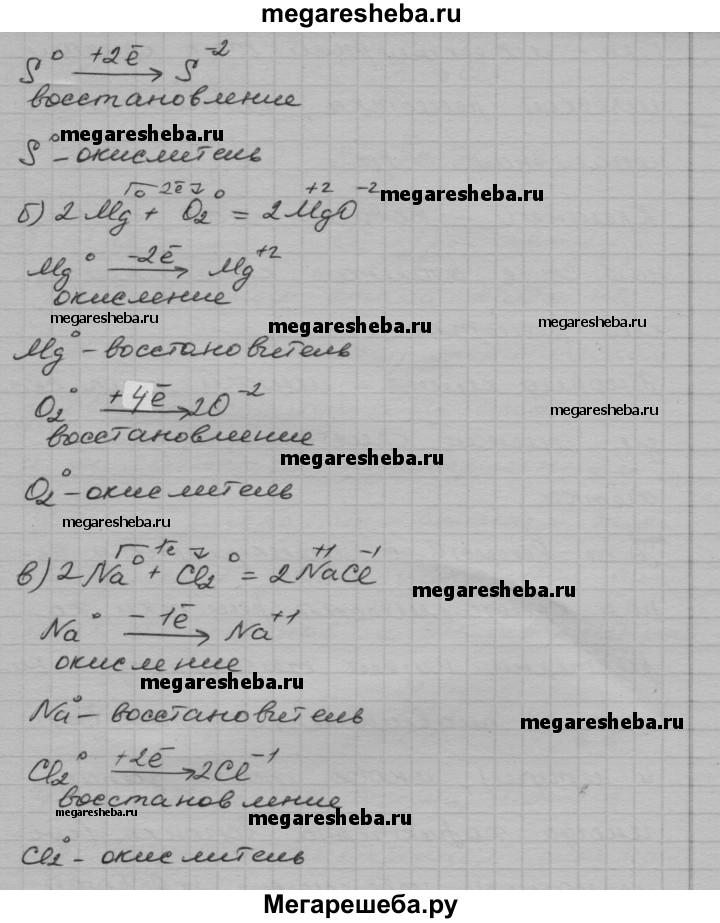 megaresheba.ru
S⁰ +2ē → S⁻²
восстановление
megaresheba.ru
S⁰ - окислитель
2ē
megaresheba.ru
б) 2Mg⁰ + O₂⁰ = 2Mg⁺²O⁻²
Mg⁰ -2ē → Mg⁺²
окисление
megaresheba.ru
megaresheba.ru
megaresheba.ru
Mg⁰ - восстановитель
O₂⁰ +4ē → 2O⁻²
megaresheba.ru
восстановление
megaresheba.ru
O₂⁰ - окислитель
megaresheba.ru
1ē
в) 2Na⁰ + Cl₂⁰ = 2Na⁺¹Cl⁻¹
megaresheba.ru
Na⁰ -1ē → Na⁺¹
окисление
megaresheba.ru
Na⁰ - восстановитель
megaresheba.ru
Cl₂⁰ +2ē → 2Cl⁻¹
восстановление
megaresheba.ru
megaresheba.ru
Cl₂⁰ - окислитель
Мегарешеба.ру